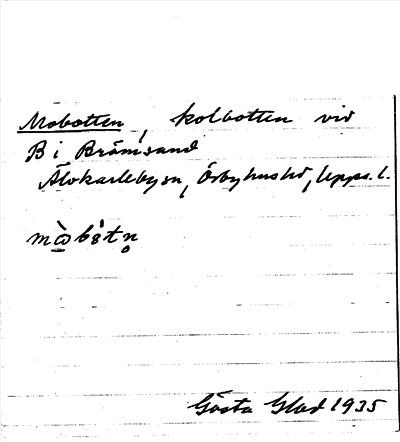 Mobotten, kolbotten vid
B i Brämsand
Älvkarleby sn, Örbyhus hd, Upps. l.
mɷ̀bɞ́tn̥
Gösta Glad 1935